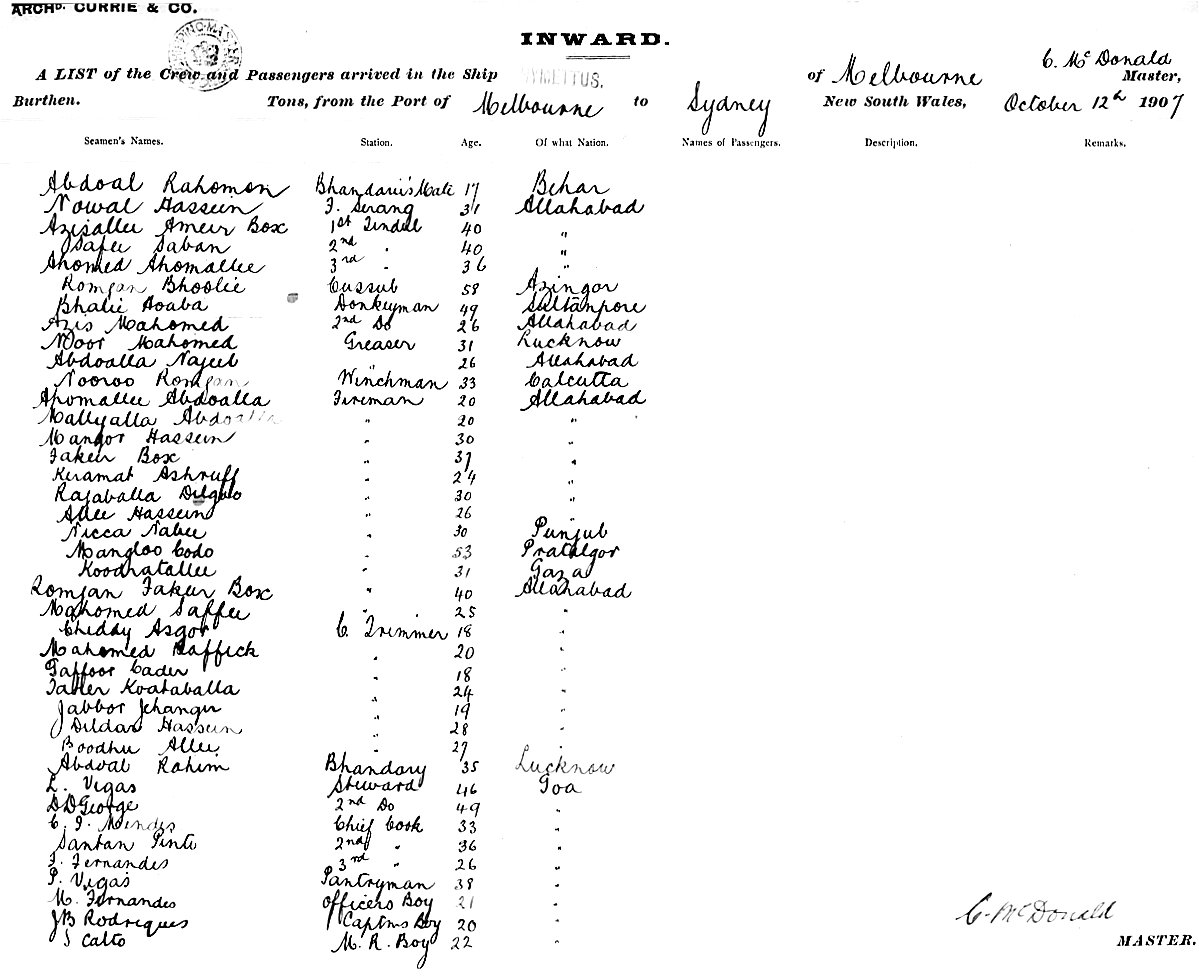 ARCHD. CURRIE & CO.
INWARD.
C. McDonald
A LIST of the Crew and Passengers arrived in the Ship HYMETTUS. of Melbourne Master,
Burthen. Tons, from the Port of Melbourne to Sydney New South Wales, October 12th 1907
Seamen's Names. Station. Age. Of what Nation. Names of Passengers. Description. Remarks.
Abdoal Rahomon Bhandarie's Mate 17 Behar
Nowal Hassein F. Serang 31 Allahabad
Azisallee Ameir Box 1st Tindell 40
Jsafee Saban 2nd " 40 "
Ahomed Ahomallee 3rd " 36 "
Romjan Bhoolie Cussub 58 Azingor
Bhalie Aoaba Donkeyman 49 Sultanpore
Azis Mahomed 2nd Do 26 Allahabad
Noor Mahomed Greaser 31 Lucknow
Abdoalla Najeeb " 26 Allahabad
Nooroo Romjan Winchman 33 Calcutta
Ahomallee Abdoalla Fireman 20 Allahabad
Mallyalla Abdoalla " 20 "
Mangor Hassein " 30 "
Fakeer Box " 37 "
Keramat Ashruff " 24 "
Rajaballa Dilgolo " 30 "
Allee Hassein " 26 "
Nicca Nabee " 30 Punjub
Mangloo Codo " 53 Pratalgor
Koodratallee " 31 Gaza
Romjan Fakeer Box " 40 Allahabad
Mahomed Saffee " 25 "
Cheddy Asgor C. Trimmer 18 "
Mahomed Raffick " 20 "
Gaffoor Cader " 18 "
Tatler Koataballa " 24 "
Jabbor Jehangir " 19 "
Dildar Hassein " 28 "
Boodhu Allee " 27 "
Abdoal Rahim Bhandary 35 Lucknow
L. Vegas Steward 46 Goa
D D George 2nd Do 49 "
C. F. Mendes Chief Cook 33 "
Santan Pinto 2nd " 36 "
F. Fernandes 3rd " 26 "
P. Vegas Pantryman 38 "
M. Fernandes Officers Boy 21 "
JB Rodriques Captns Boy 20 "
S Calto M. R. Boy 22 "
C. McDonald
MASTER.